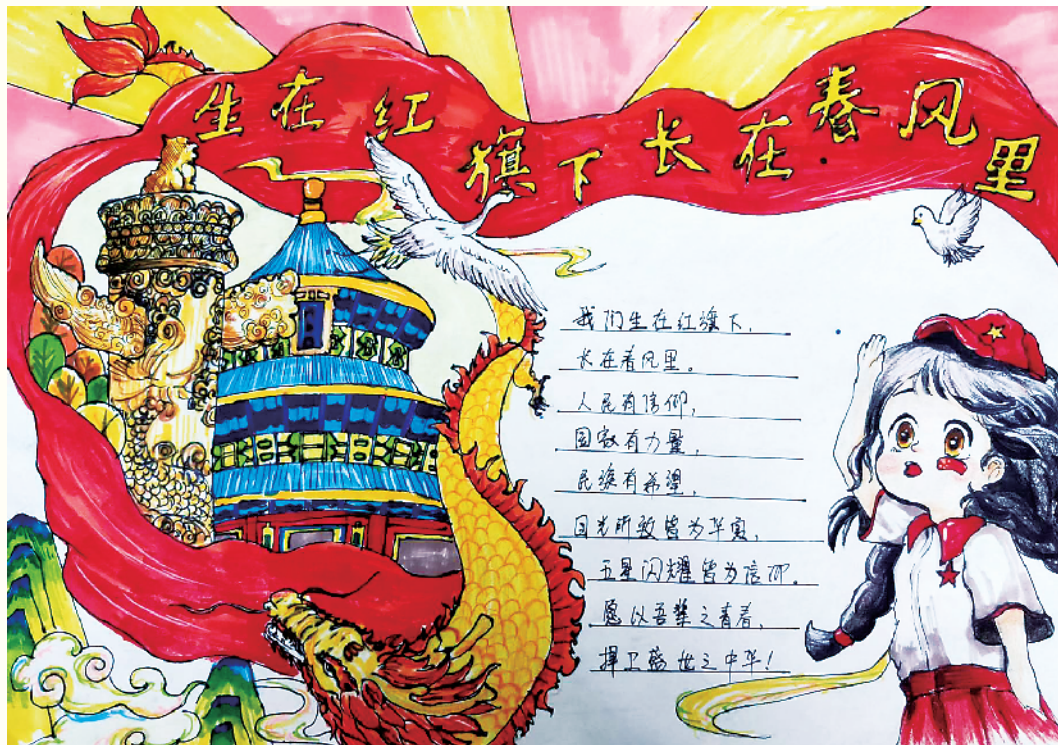 生在红旗下长在春风里
我们生在红旗下,
长在春风里。
人民有信仰,
国家有力量,
民族有希望,
目光所致皆为华夏,
五星闪耀皆为信仰。
愿以吾辈之青春,
捍卫盛世之中华!